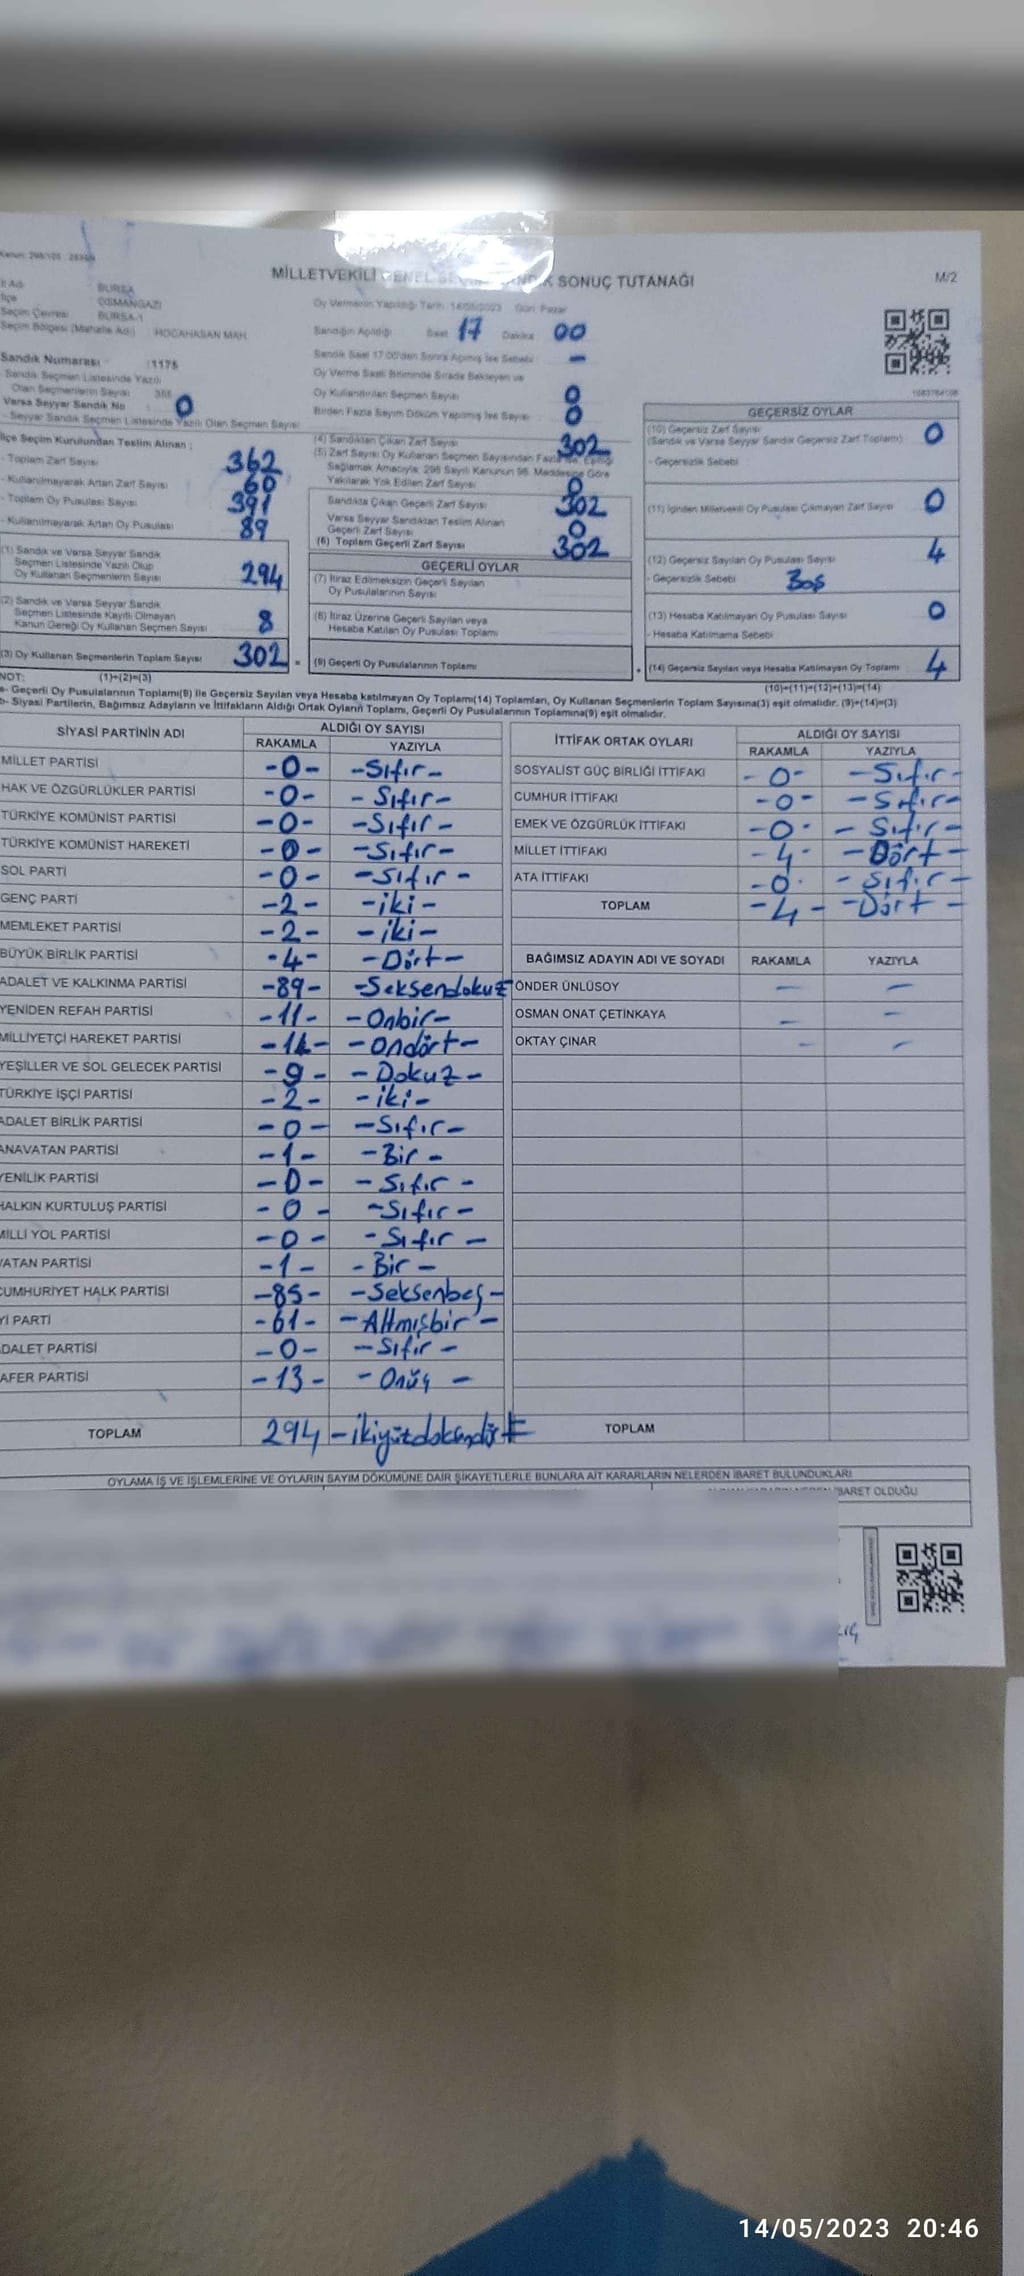 Kanun: 298/105
MİLLETVEKİLİ GENEL SONUÇ TUTANAĞI
M/2
İl Adı BURSA
İlçe OSMANGAZİ
Seçim Çevresi BURSA-1
Seçim Bölgesi (Mahalle Adı) HOCAHASAN MAH.
Oy Vermenin Yapıldığı Tarih: 14/05/2023 Gün: Pazar
Sandığın Açıldığı Saat 17 Dakika 00
Sandık Saat 17:00'den Sonra Açılmış İse Sebebi -
Oy Verme Saati Bitiminde Sırada Bekleyen ve
Oy Kullandırılan Seçmen Sayısı 0
Birden Fazla Sayım Döküm Yapılmış İse Sayısı 0
Sandık Numarası : 1175
Sandık Seçmen Listesinde Yazılı
Olan Seçmenlerin Sayısı
Varsa Seyyar Sandık No 0
- Seyyar Sandık Seçmen Listesinde Yazılı Olan Seçmen Sayısı
İlçe Seçim Kurulundan Teslim Alınan ;
- Toplam Zarf Sayısı 362
- Kullanılmayarak Artan Zarf Sayısı 60
- Toplam Oy Pusulası Sayısı 391
- Kullanılmayarak Artan Oy Pusulası 89
(1) Sandık ve Varsa Seyyar Sandık
Seçmen Listesinde Yazılı Olup
Oy Kullanan Seçmenlerin Sayısı 294
(2) Sandık ve Varsa Seyyar Sandık
Seçmen Listesinde Kayıtlı Olmayan
Kanun Gereği Oy Kullanan Seçmen Sayısı 8
(3) Oy Kullanan Seçmenlerin Toplam Sayısı 302 =
(4) Sandıktan Çıkan Zarf Sayısı 302
(5) Zarf Sayısı Oy Kullanan Seçmen Sayısından Fazla İse, Eşitliği
Sağlamak Amacıyla; 298 Sayılı Kanunun 98. Maddesine Göre
Yakılarak Yok Edilen Zarf Sayısı 0
Sandıkta Çıkan Geçerli Zarf Sayısı 302
Varsa Seyyar Sandıktan Teslim Alınan
Geçerli Zarf Sayısı 0
(6) Toplam Geçerli Zarf Sayısı 302
GEÇERLİ OYLAR
(7) İtiraz Edilmeksizin Geçerli Sayılan
Oy Pusulalarının Sayısı
(8) İtiraz Üzerine Geçerli Sayılan veya
Hesaba Katılan Oy Pusulası Toplamı
(9) Geçerli Oy Pusulalarının Toplamı +
GEÇERSİZ OYLAR
(10) Geçersiz Zarf Sayısı
(Sandık ve Varsa Seyyar Sandık Geçersiz Zarf Toplamı) 0
- Geçersizlik Sebebi
(11) İçinden Milletvekili Oy Pusulası Çıkmayan Zarf Sayısı 0
(12) Geçersiz Sayılan Oy Pusulası Sayısı 4
- Geçersizlik Sebebi Boş
(13) Hesaba Katılmayan Oy Pusulası Sayısı 0
- Hesaba Katılmama Sebebi
(14) Geçersiz Sayılan veya Hesaba Katılmayan Oy Toplamı 4
NOT: (1)+(2)=(3) (10)+(11)+(12)+(13)=(14)
a- Geçerli Oy Pusulalarının Toplamı(9) ile Geçersiz Sayılan veya Hesaba katılmayan Oy Toplamı(14) Toplamları, Oy Kullanan Seçmenlerin Toplam Sayısına(3) eşit olmalıdır. (9)+(14)=(3)
b- Siyasi Partilerin, Bağımsız Adayların ve İttifakların Aldığı Ortak Oyların Toplamı, Geçerli Oy Pusulalarının Toplamına(9) eşit olmalıdır.
SİYASİ PARTİNİN ADI ALDIĞI OY SAYISI
RAKAMLA YAZIYLA
MİLLET PARTİSİ -0- -Sıfır-
HAK VE ÖZGÜRLÜKLER PARTİSİ -0- -Sıfır-
TÜRKİYE KOMÜNİST PARTİSİ -0- -Sıfır-
TÜRKİYE KOMÜNİST HAREKETİ -0- -Sıfır-
SOL PARTİ -0- -Sıfır-
GENÇ PARTİ -2- -iki-
MEMLEKET PARTİSİ -2- -iki-
BÜYÜK BİRLİK PARTİSİ -4- -Dört-
ADALET VE KALKINMA PARTİSİ -89- -Seksendokuz
YENİDEN REFAH PARTİSİ -11- -Onbir-
MİLLİYETÇİ HAREKET PARTİSİ -14- -Ondört-
YEŞİLLER VE SOL GELECEK PARTİSİ -9- -Dokuz-
TÜRKİYE İŞÇİ PARTİSİ -2- -iki-
ADALET BİRLİK PARTİSİ -0- -Sıfır-
ANAVATAN PARTİSİ -1- -Bir-
YENİLİK PARTİSİ -0- -Sıfır-
HALKIN KURTULUŞ PARTİSİ -0- -Sıfır-
MİLLİ YOL PARTİSİ -0- -Sıfır-
VATAN PARTİSİ -1- -Bir-
CUMHURİYET HALK PARTİSİ -85- -Seksenbeş-
İYİ PARTİ -61- -Altmışbir-
ADALET PARTİSİ -0- -Sıfır-
ZAFER PARTİSİ -13- -Onüç-
TOPLAM 294 -ikiyüzdoksandört
İTTİFAK ORTAK OYLARI ALDIĞI OY SAYISI
RAKAMLA YAZIYLA
SOSYALİST GÜÇ BİRLİĞİ İTTİFAKI -0- -Sıfır-
CUMHUR İTTİFAKI -0- -Sıfır-
EMEK VE ÖZGÜRLÜK İTTİFAKI -0- -Sıfır-
MİLLET İTTİFAKI -4- -Dört-
ATA İTTİFAKI -0- -Sıfır-
TOPLAM -4- -Dört-
BAĞIMSIZ ADAYIN ADI VE SOYADI RAKAMLA YAZIYLA
ÖNDER ÜNLÜSOY - -
OSMAN ONAT ÇETİNKAYA - -
OKTAY ÇINAR - -
TOPLAM
OYLAMA İŞ VE İŞLEMLERİNE VE OYLARIN SAYIM DÖKÜMÜNE DAİR ŞİKAYETLERLE BUNLARA AİT KARARLARIN NELERDEN İBARET BULUNDUKLARI
İBARET OLDUĞU
14/05/2023 20:46